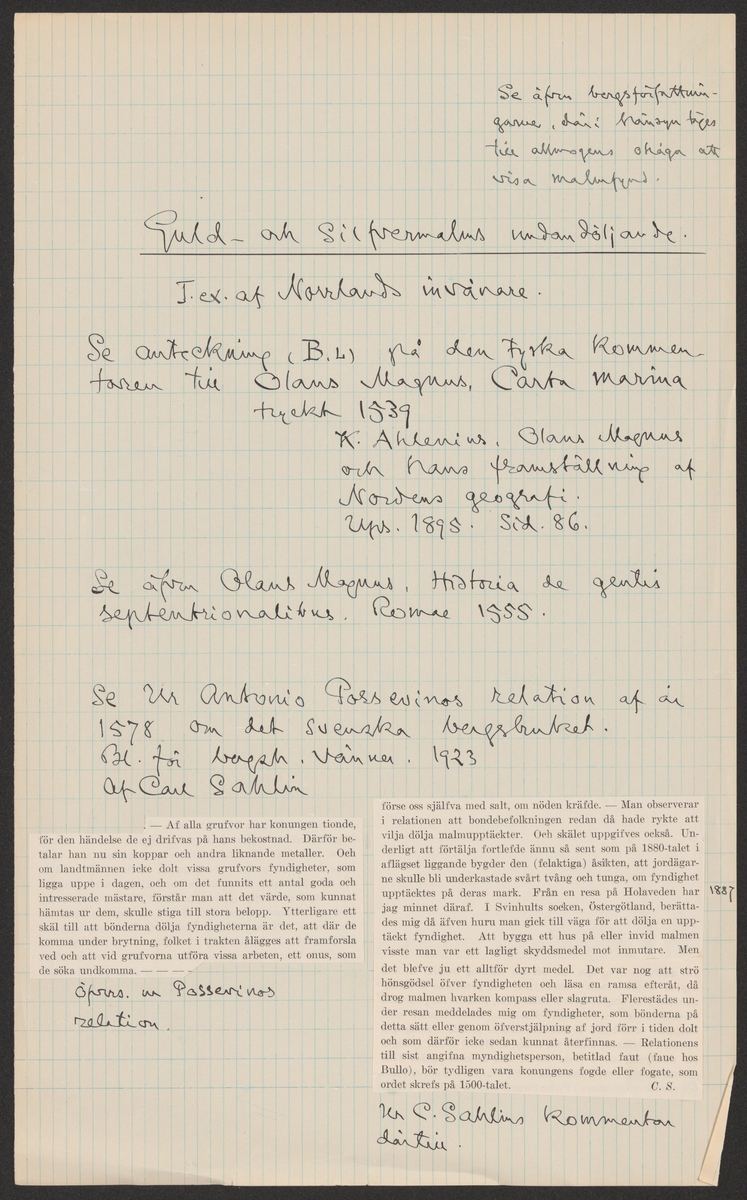 Se äfven bergsförfattnin-
garne, där: hänsyn tages
till allmogens ohåga att
visa malmfynd.
Guld- och Silfvermalms undandöljande.
T. ex. af Norrlands invånare.
Se anteckning (B. L) på den tyska kommen-
taren till Olaus Magnus, Carta marina
tryckt 1539
K. Ahlenius, Olaus Magnus
och hans framställning af
Nordens geografi.
Ups. 1895. Sid. 86.
Se äfven Olaus Magnus, Historia de gentis
septentrionalibus. Romae 1555.
Se Ur Antonio Possevinos relation af år
1578 om det svenska bergsbruket.
Bl. för bergsh. vänner. 1923
Af Carl Sahlin
. — Af alla grufvor har konungen tionde,
för den händelse de ej drifvas på hans bekostnad. Därför be-
talar han nu sin koppar och andra liknande metaller. Och
om landtmännen icke dolt vissa grufvors fyndigheter, som
ligga uppe i dagen, och om det funnits ett antal goda och
intresserade mästare, förstår man att det värde, som kunnat
hämtas ur dem, skulle stiga till stora belopp. Ytterligare ett
skäl till att bönderna dölja fyndigheterna är det, att där de
komma under brytning, folket i trakten ålägges att framforsla
ved och att vid grufvorna utföra vissa arbeten, ett onus, som
de söka undkomma. — — — —
Öfvers. ur Possevinos
relation.
förse oss själfva med salt, om nöden kräfde. — Man observerar
i relationen att bondebefolkningen redan då hade rykte att
vilja dölja malmupptäckter. Och skälet uppgifves också. Un-
derligt att förtälja fortlefde ännu så sent som på 1880-talet i
aflägset liggande bygder den (felaktiga) åsikten, att jordägar-
ne skulle bli underkastade svårt tvång och tunga, om fyndighet
upptäcktes på deras mark. Från en resa på Holaveden har
jag minnet däraf. I Svinhults socken, Östergötland, berätta-
des mig då äfven huru man gick till väga för att dölja en upp-
täckt fyndighet. Att bygga ett hus på eller invid malmen
visste man var ett lagligt skyddsmedel mot inmutare. Men
det blefve ju ett alltför dyrt medel. Det var nog att strö
hönsgödsel öfver fyndigheten och läsa en ramsa efteråt, då
drog malmen hvarken kompass eller slagruta. Flerestädes un-
der resan meddelades mig om fyndigheter, som bönderna på
detta sätt eller genom öfverstjälpning af jord förr i tiden dolt
och som därför icke sedan kunnat återfinnas. — Relationens
till sist angifna myndighetsperson, betitlad faut (faue hos
Bullo), bör tydligen vara konungens fogde eller fogate, som
ordet skrefs på 1500-talet. C. S.
1887
Ur C. Sahlins kommentar
därtill.